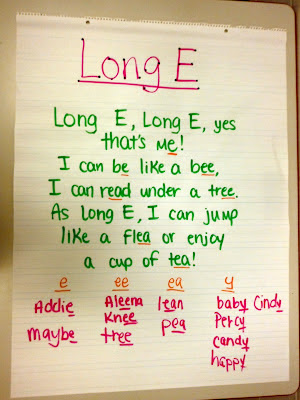 Long E
Long E, Long E, yes
that's me!
I can be like a bee,
I can read under a tree.
As Long E, I can jump
like a flea or enjoy
a cup of tea!
e ee ea y
Addie Aleena lean baby Cindy
maybe Knee pea Percy
tree candy
happy